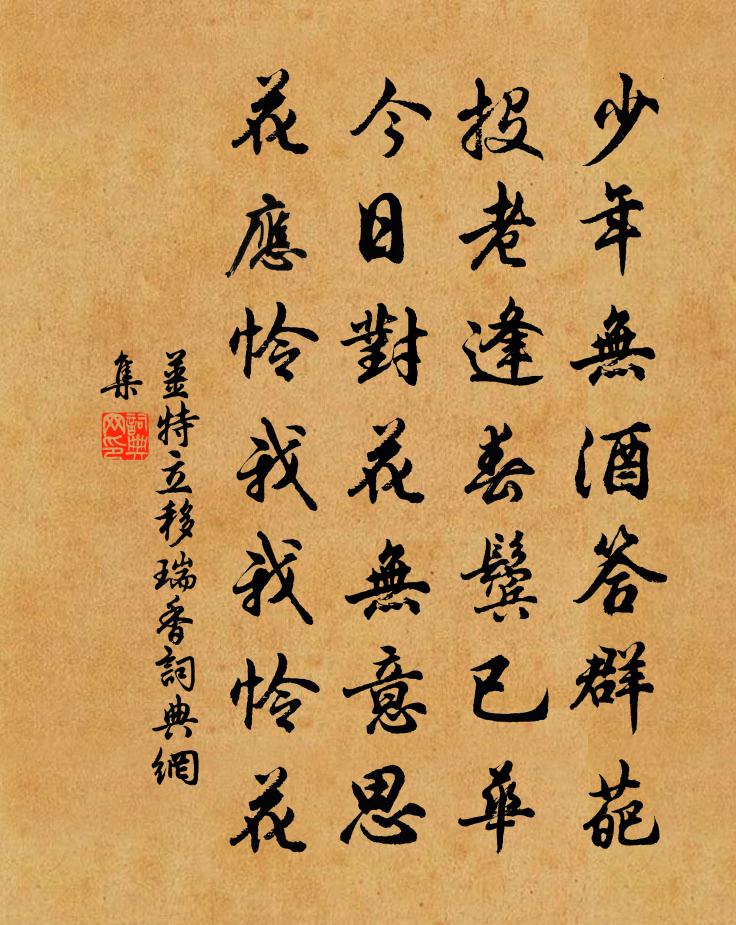 少年無酒答群葩
投老逢春鬢已華
今日對花無意思
花應怜我我怜花
姜特立移瑞香詞典網
集
詞典網印